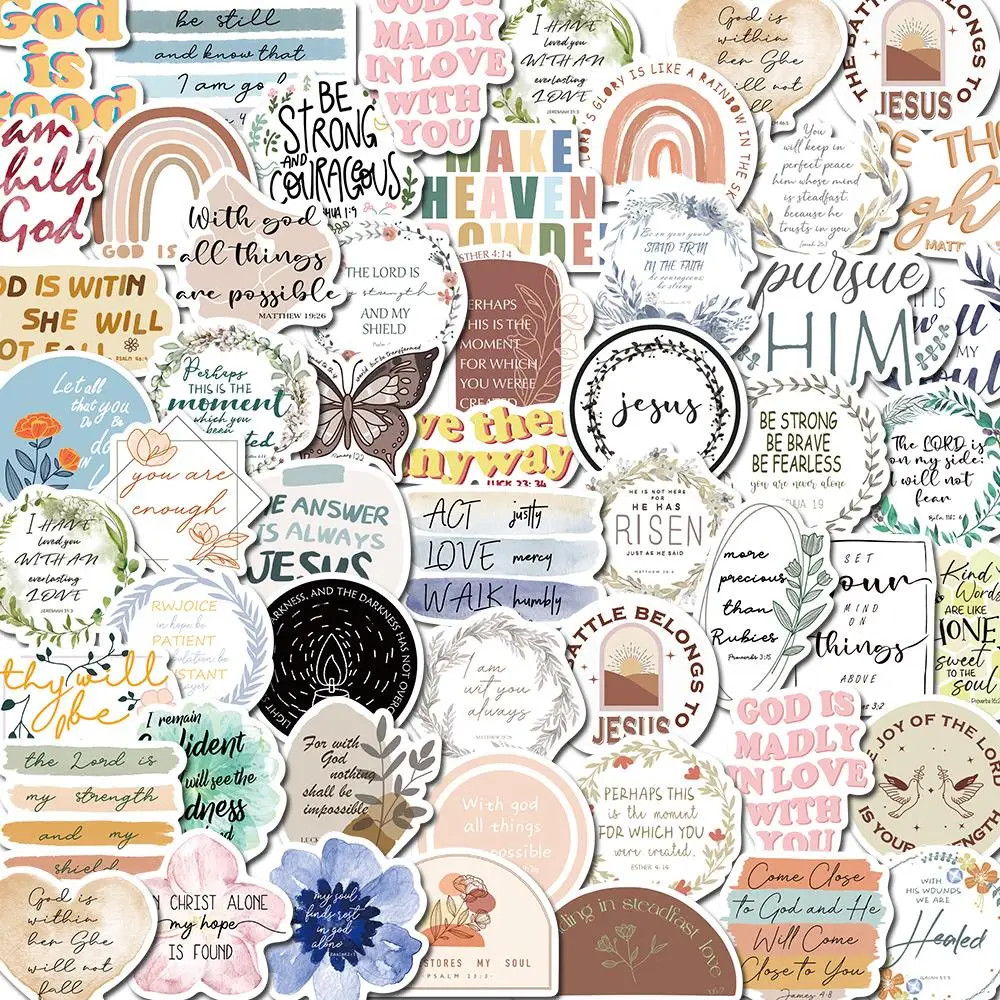 God
is
good
be still
and know that
I am go
GOD IS
MADLY
IN LOVE
WITH
YOU
I HAVE
loved you
WITH AN
everlasting
LOVE
JEREMIAH 31:3
God is
within
her She
will not
fall
THE BATTLE BELONGS TO
JESUS
am
child
God
GOD IS
BE
STRONG
AND
COURAGEOUS
HUA 1:9
MAKE
HEAVEN
ROWDE
LORD'S GLORY IS LIKE A RAINBOW IN THE SK
You
will keep in
perfect peace
him whose mind
is steadfast,
because he
trusts in you
Isaiah 26:3
BE TH
gh
MATT
With god
all things
are possible
MATTHEW 19:26
THE LORD IS
my strength
AND MY
SHIELD
Psalm
ESTHER 4:14
ERHAPS
THIS IS THE
MOMENT
FOR WHICH
YOU WEREE
CREATED
Be on your guard
STAND FIRM
IN THE FAITH
be courageous;
be strong
pursue
HIM
IT IS
MY
soul
OD IS WITIN
SHE WILL
OT FALL
PSALM 46:5
Perhaps
THIS IS THE
moment
which you
been
ted
but be transformed
Romans 12:2
ve them
nyway
LUCK 23:34
jesus
BE STRONG
BE BRAVE
BE FEARLESS
you are never alone
HUA 1:9
The LORD is
on my side;
I will not
fear
Psalm 118:6
Let all
that you
Do Be
do
IN
you are
enough
HE ANSWER
IS ALWAYS
JESUS
ACT justly
LOVE mercy
WALK humbly
HE IS NOT HERE
FOR
HE HAS
RISEN
JUST AS HE SAID
MATTHEW 28:6
more
precious
than
Rubies
Proverbs 3:15
SET
your
MIND
ON
things
ABOVE
3:2
Kind
Words
ARE LIKE
HONE
SWEET
TO THE
soul
Proverbs 16:
I HAVE
loved you
WITH AN
everlasting
LOVE
JEREMIAH 31:3
RWJOICE
in hope; be
PATIENT
tribulation; be
NSTANT
prayer
LIGHT
ARKNESS, AND THE DARKNESS HAS NOT OVERC
I am
wit you
always
MATTHEW 28:20
BATTLE BELONGS TO
JESUS
thy will
be
I remain
fident
will see the
odness
the Lord is
my strength
and my
shield
For with
God
nothing
shall be
impossible
LUCK
With god
all things
possible
PERHAPS THIS
is the moment
FOR WHICH YOU
were created.
ESTHER 4:14
GOD IS
MADLY
IN LOVE
WITH
YOU
E JOY OF THE LORD
IS YOUR STRENGTH
God is
within
her She
will not
fall
N CHRIST ALONE
my hope
IS FOUND
my soul
finds rest
in god
alone
Psalm 62:1
STORES MY SOUL
PSALM 23:3
ding in steadfast love
Come Close
to God and He
Will Come
Close to You
James 4:8
WITH
HIS WOUNDS
WE ARE
Healed
ISAIAH 53:5